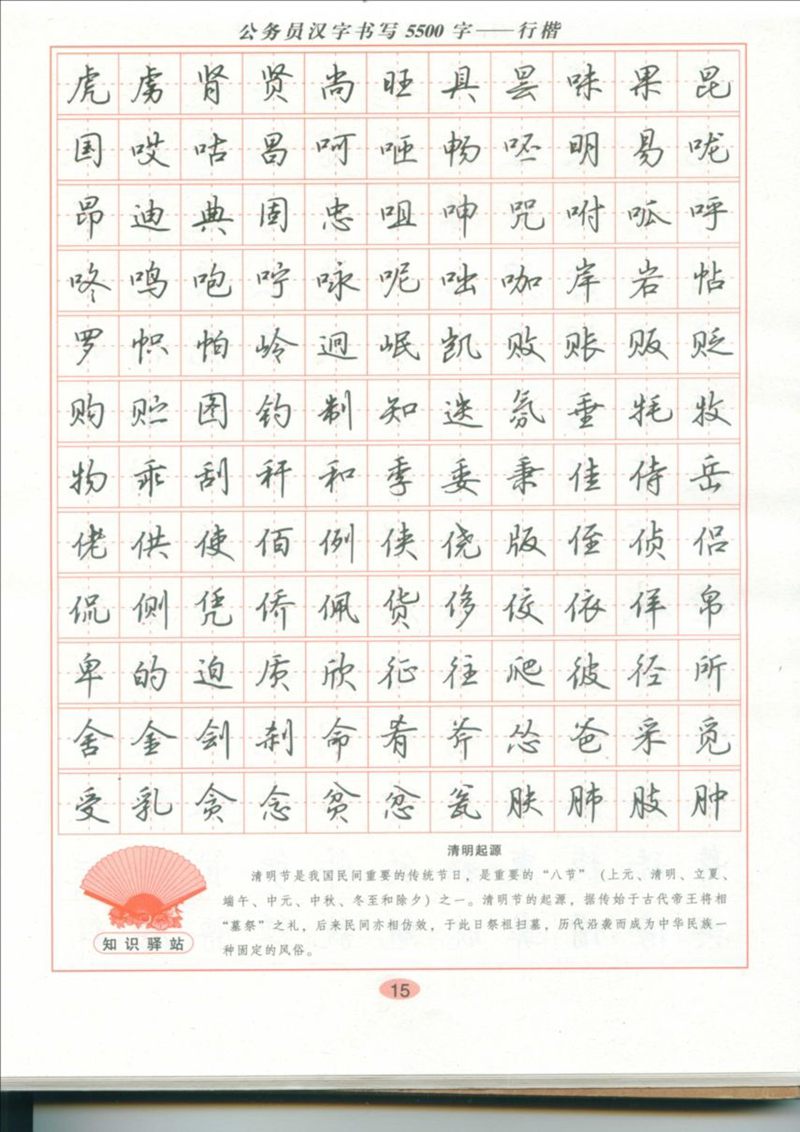 公务员汉字书写5500字——行楷
虎虏肾贤尚旺具昙味果昆
国哎咕昌呵咂畅呸明易咙
昂迪典固忠咀呻咒咐呱呼
咚鸣咆咛咏呢咄咖岸岩帖
罗帜怕岭迥岷凯败账贩贬
购贮图钓制知迭氛垂牦牧
物乖刮秆和季委秉佳侍岳
佬供使佰例侠侥版侄侦侣
侃侧凭侨佩货侈佼依佯帛
卑的迫质欣征往爬彼径所
舍金刽刹命肴斧怂爸采觅
受乳贪念贫忿瓮肤肺肢肿
清明起源
清明节是我国民间重要的传统节日，是重要的“八节”（上元、清明、立夏、
端午、中元、中秋、冬至和除夕）之一。清明节的起源，据传始于古代帝王将相
“墓祭”之礼，后来民间亦相仿效，于此日祭祖扫墓，历代沿袭而成为中华民族一
种固定的风俗。
知识驿站
15